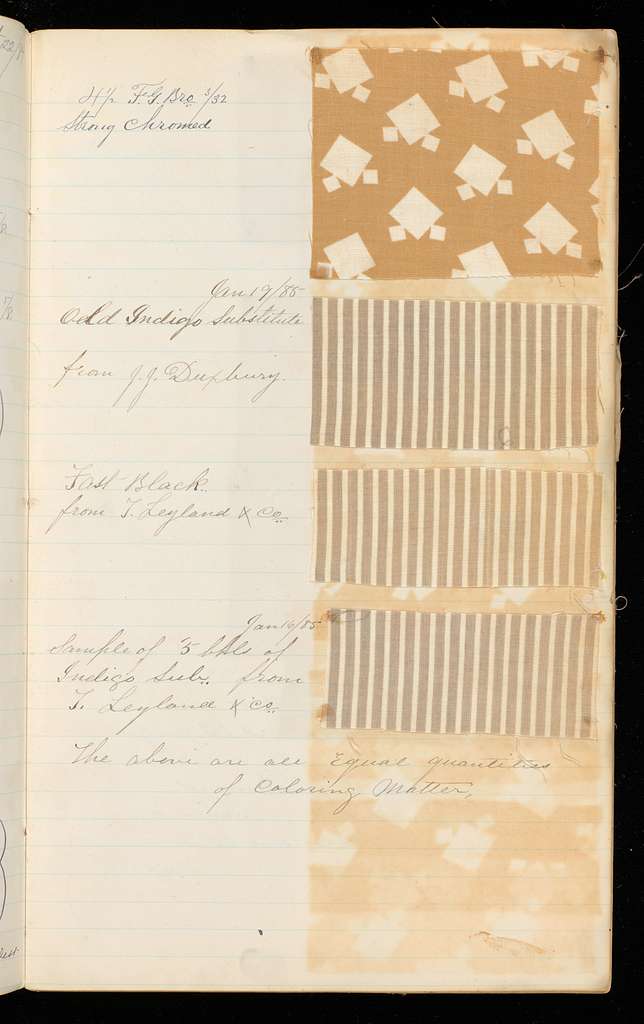 4½ F.G. Bro 3/32
Strong Chromed
Jan 19/85
Odd Indigo Substitute
from J.J. Duxbury.
Fast Black.
from T. Leyland & Co.
Jan 16/85
Sample of 5 bbls of
Indigo Sub. from
T. Leyland & Co.
The above are all Equal quantities
of Coloring Matter,